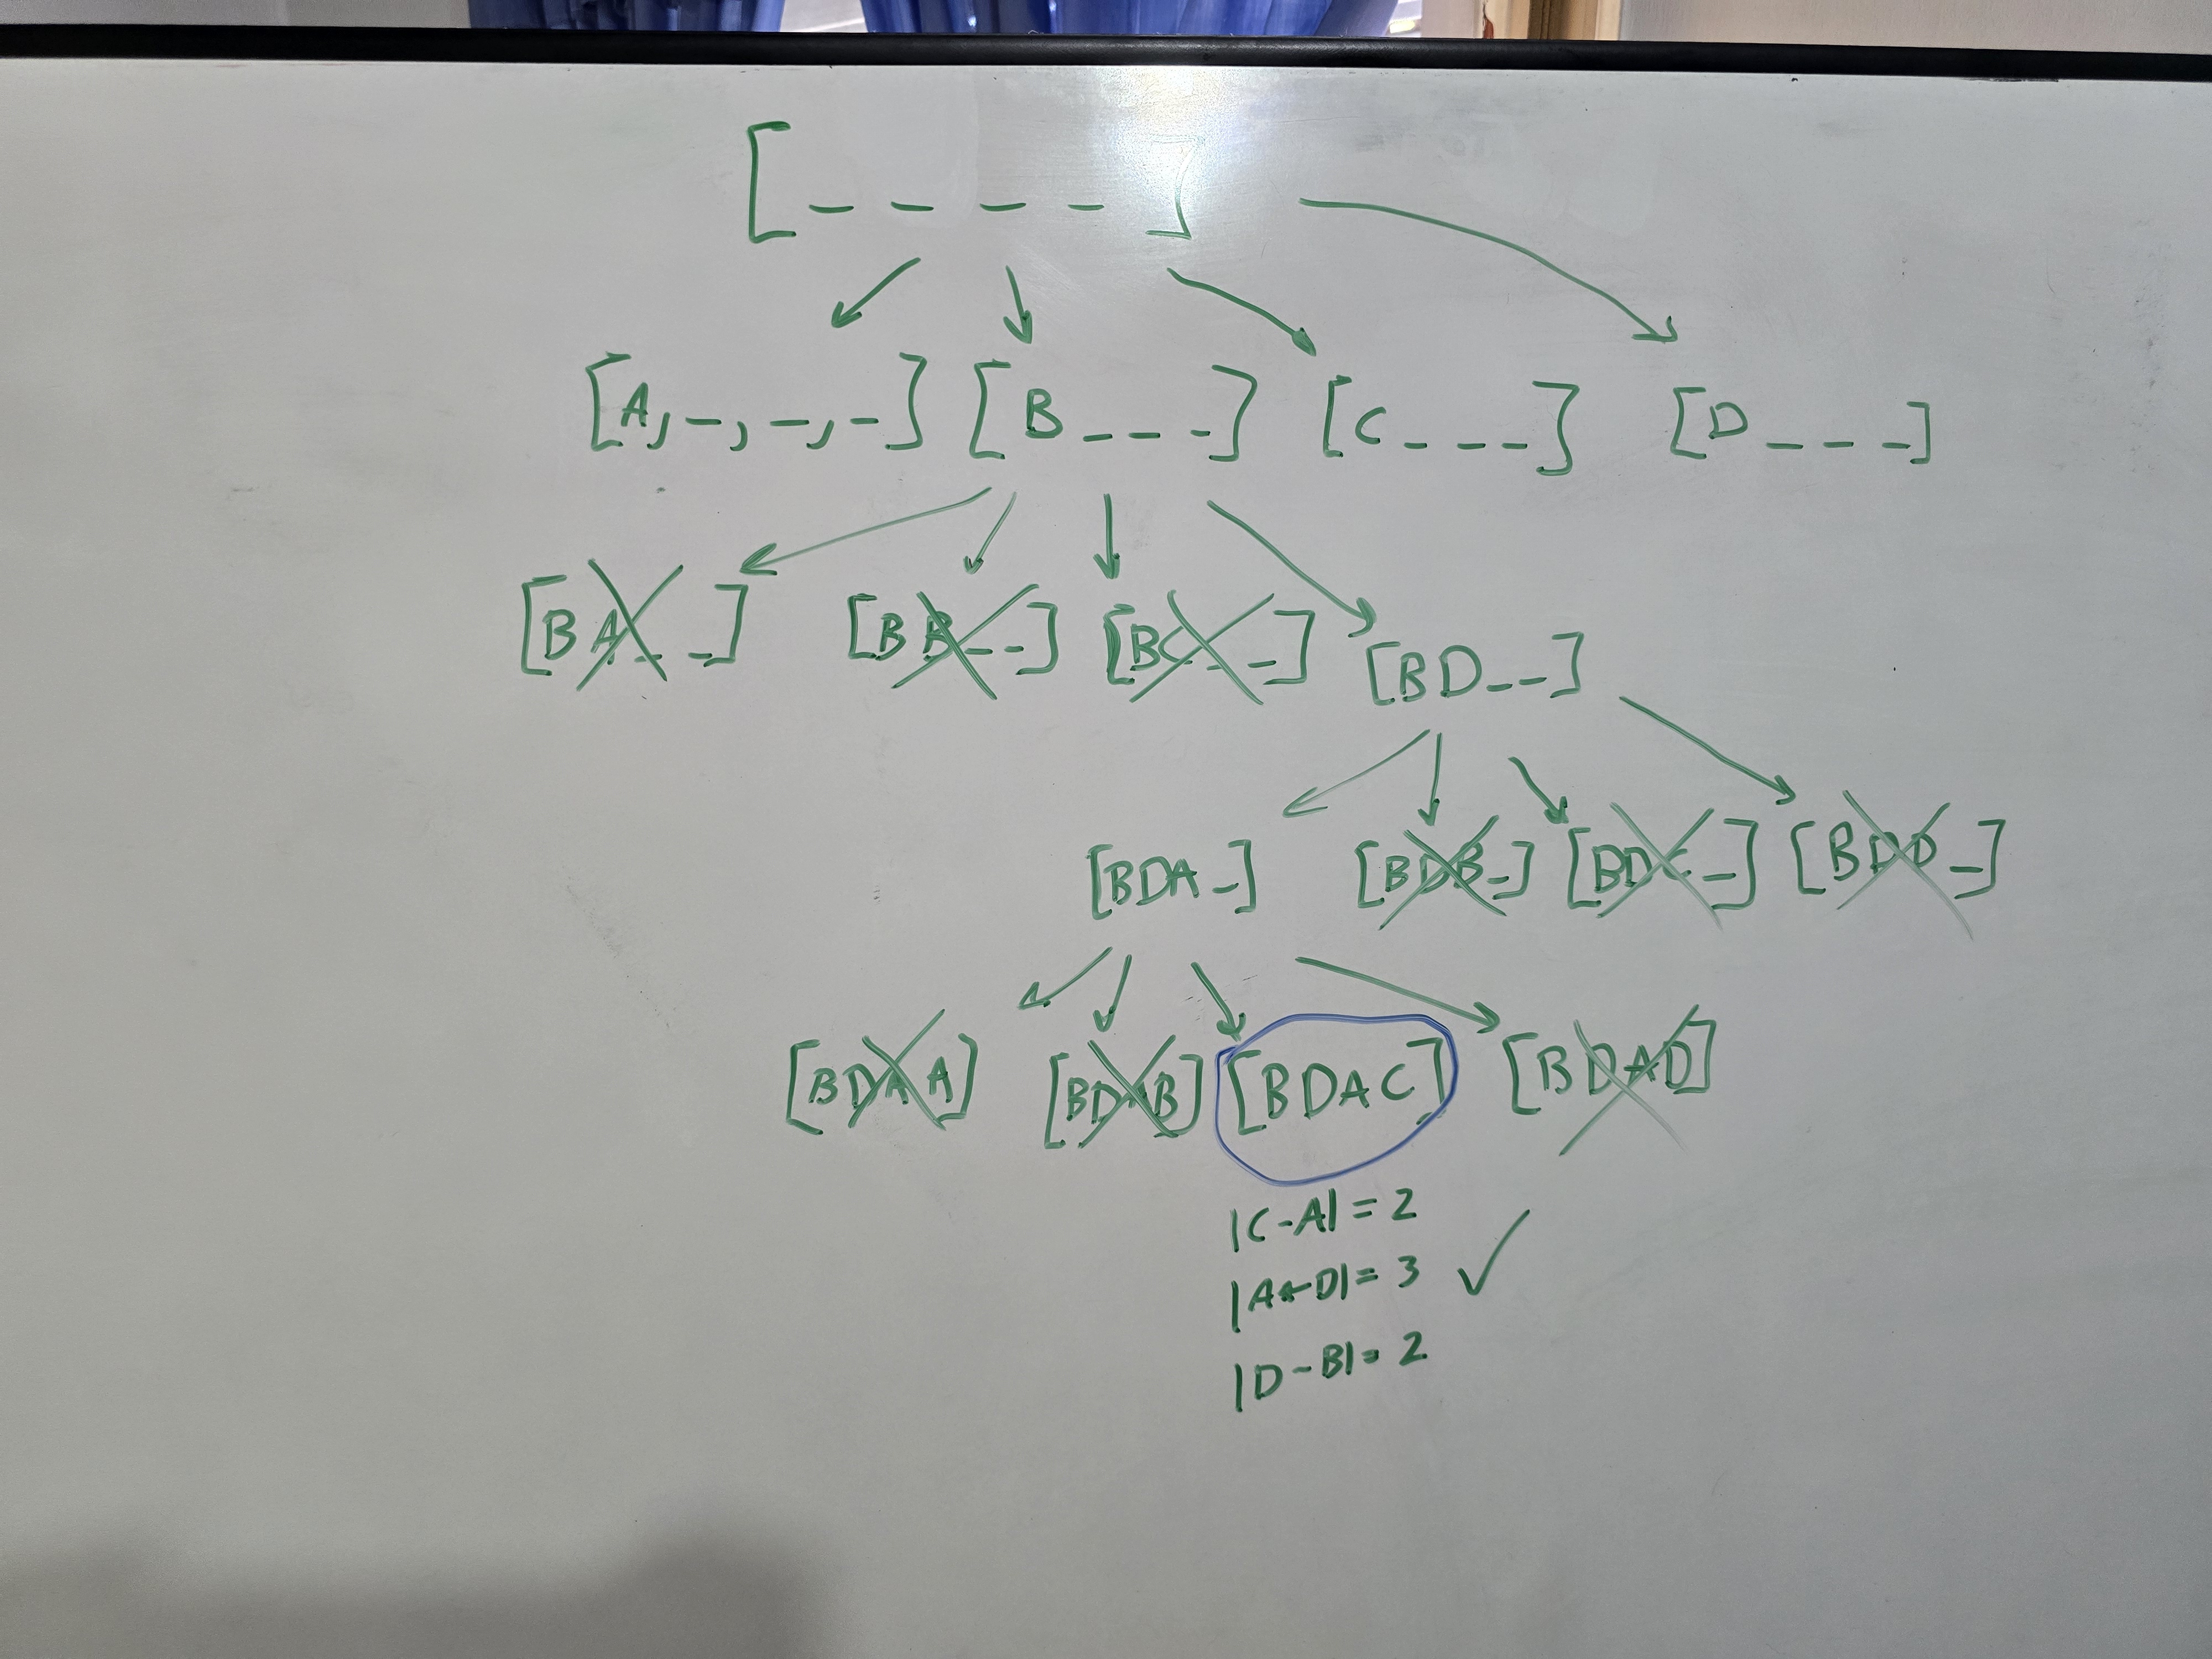 [ _ _ _ _ ]
[A, _, _, _] [B _ _ _] [C _ _ _] [D _ _ _]
[BA _ _] [BB _ _] [BC _ _] [BD _ _]
[BDA _] [BDB _] [BDC _] [BDD _]
[BDAA] [BDAB] [BDAC] [BDAD]
|C-A| = 2
|A-D| = 3 ✓
|D-B| = 2